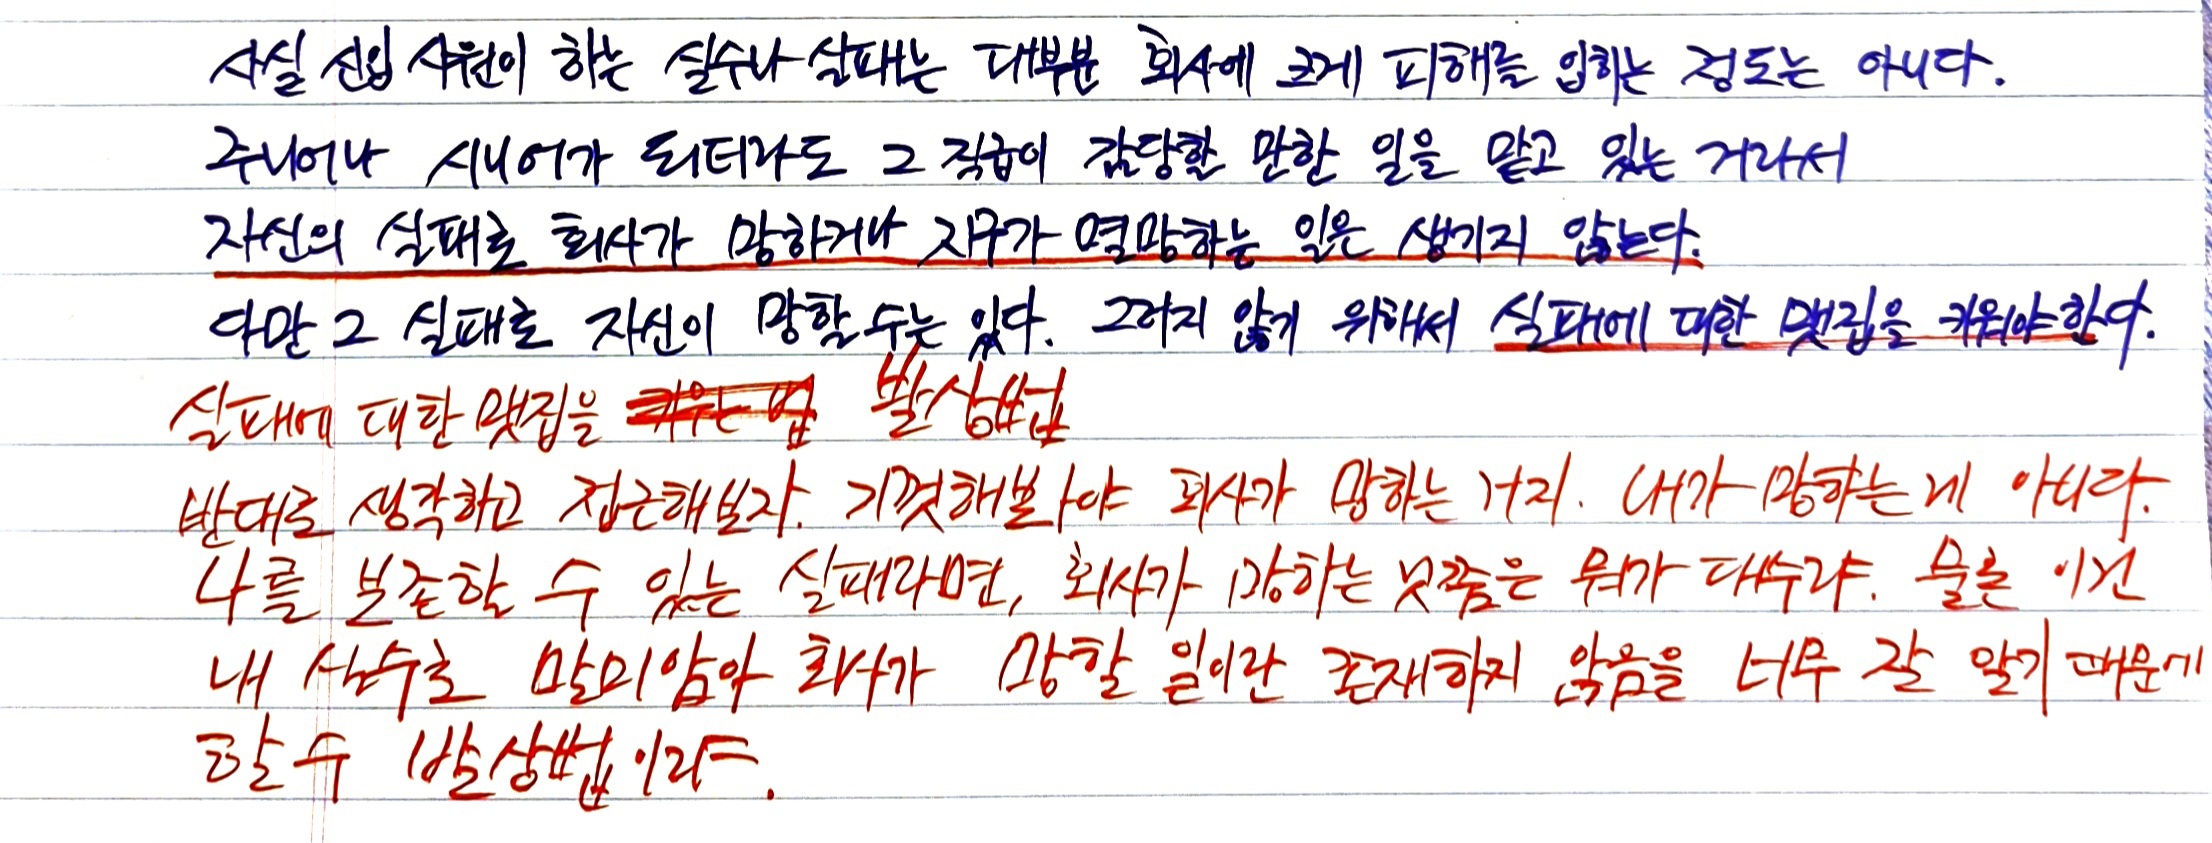 사실 신입 사원이 하는 실수나 실패는 대부분 회사에 크게 피해를 입히는 정도는 아니다.
주니어나 시니어가 되더라도 그 직급이 감당할 만한 일을 맡고 있는 거라서
자신의 실패로 회사가 망하거나 지구가 멸망하는 일은 생기지 않는다.
다만 그 실패로 자신이 망할 수는 있다. 그러지 않기 위해서 실패에 대한 맷집을 키워야 한다.
실패에 대한 맷집을 키우는 법 발상법
반대로 생각하고 접근해보자. 기껏해봐야 회사가 망하는 거지. 내가 망하는 게 아니다.
나를 보존할 수 있는 실패라면, 회사가 망하는 것쯤은 뭐가 대수랴. 물론 이건
내 실수로 말미암아 회사가 망할 일이란 존재하지 않음을 너무 잘 알기 때문에
할 수 발상법이랴.